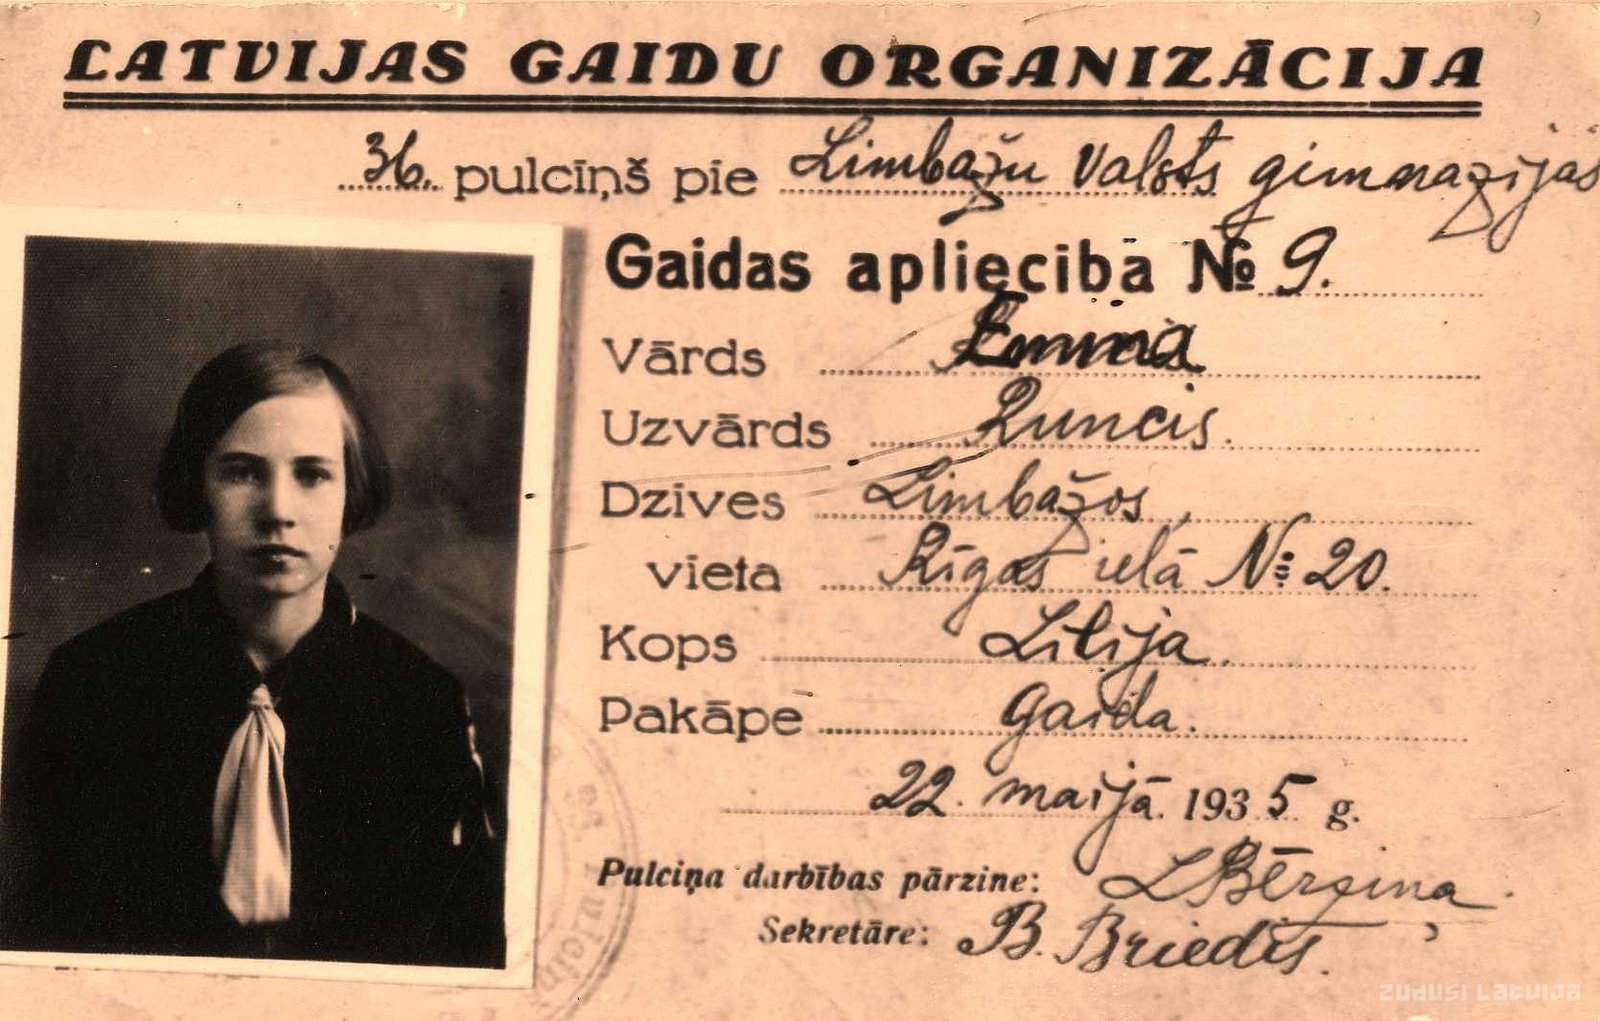 LATVIJAS GAIDU ORGANIZĀCIJA
36. pulciņš pie Limbažu Valsts ģimnazijas
Gaidas apliecība № 9.
Vārds Emma
Uzvārds Runcis.
Dzives Limbažos,
vieta Rīgas ielā № 20.
Kops Lilija.
Pakāpe gaida.
22. maijā 1935 g.
Pulciņa darbības pārzine: L Bērziņa
Sekretāre: B. Briedis.
zudusi Latvija